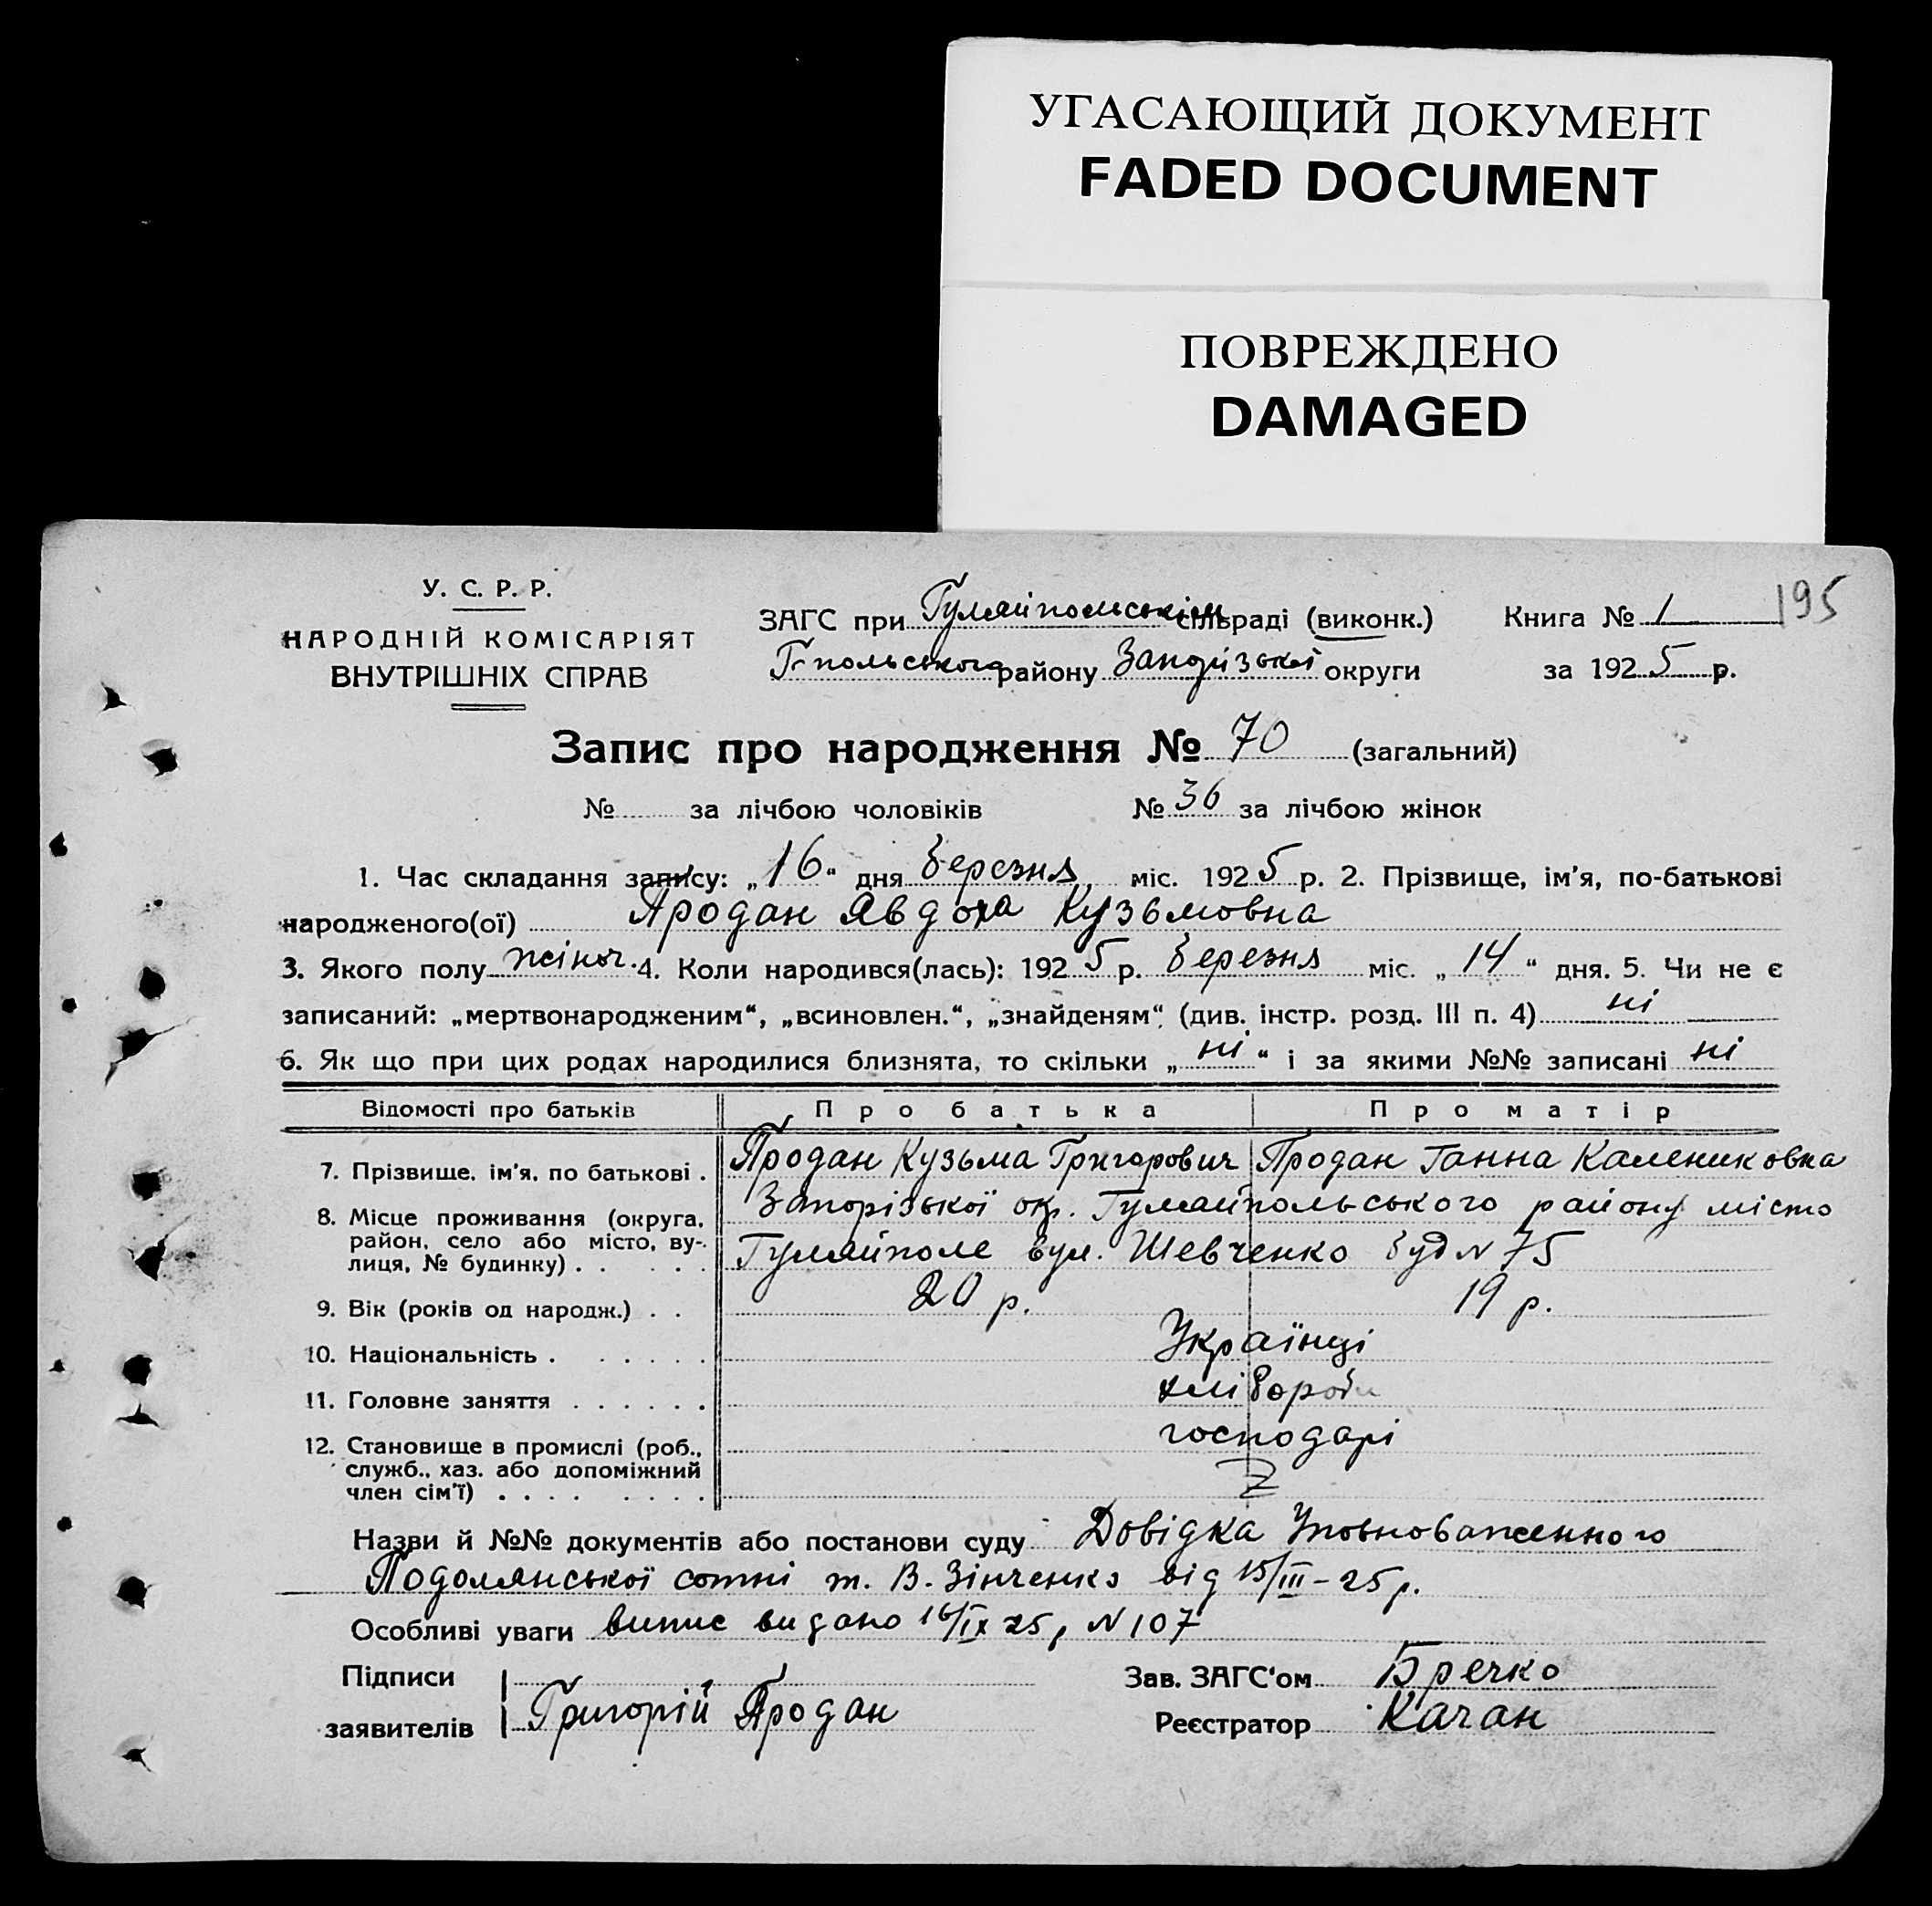 УГАСАЮЩИЙ ДОКУМЕНТ
FADED DOCUMENT
ПОВРЕЖДЕНО
DAMAGED
195
У. С. Р. Р.
НАРОДНІЙ КОМІСАРІЯТ
ВНУТРІШНІХ СПРАВ
ЗАГС при Гуляйпольськім сільраді (виконк.) Книга № 1
Г-польського району Запорізької округи за 1925 р.
Запис про народження № 70 (загальний)
№ за лічбою чоловіків № 36 за лічбою жінок
1. Час складання запису: „16“ дня березня міс. 1925 р. 2. Прізвище, ім'я, по-батькові
народженого(ої) Продан Явдоха Кузьмовна
3. Якого полу жіноч. 4. Коли народився(лась): 1925 р. березня міс. „14“ дня. 5. Чи не є
записаний: „мертвонародженим“, „всиновлен.“, „знайденям“ (див. інстр. розд. III п. 4) ні
6. Як що при цих родах народилися близнята, то скільки „ні“ і за якими №№ записані ні
Відомості про батьків Про батька Про матір
7. Прізвище, ім'я, по батькові . Продан Кузьма Григорович Продан Ганна Калениковна
8. Місце проживання (округа, район, село або місто, вулиця, № будинку) . . . . . Запорізької окр. Гуляйпольського району місто
Гуляйполе вул. Шевченко буд N 75
9. Вік (років од народж.) . . 20 р. 19 р.
10. Національність . . . . . . Українці
11. Головне заняття . . . . . . хлібороби
12. Становище в промислі (роб., служб., хаз. або допоміжний член сім'ї) . . . . . . . . господарі
Назви й №№ документів або постанови суду Довідка Уповноваженного
Подолянської сотні т. В. Зінченко від 15/III-25 р.
Особливі уваги випис видано 16/IX 25 р N 107
Підписи
заявителів Григорій Продан
Зав. ЗАГС'ом Бречко
Реєстратор Качан